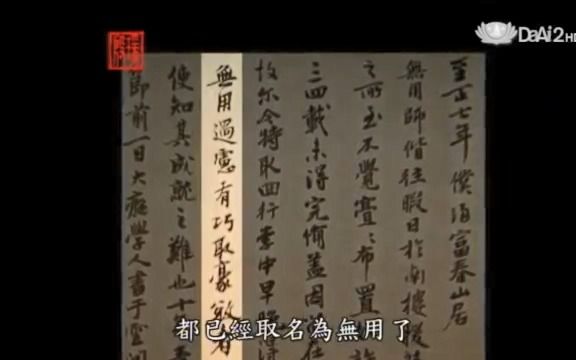 DaAi2HD
至正七年僕歸富春山居
無用師偕往暇日於南樓援
之所至不覺亹亹布置如許
三四載未得完備蓋因留在
故尔今特取回行李中早晚得
無用過慮有巧取豪敓者
使知其成就之難也十年青
節前一日大癡學人書于雲間
都已經取名為無用了